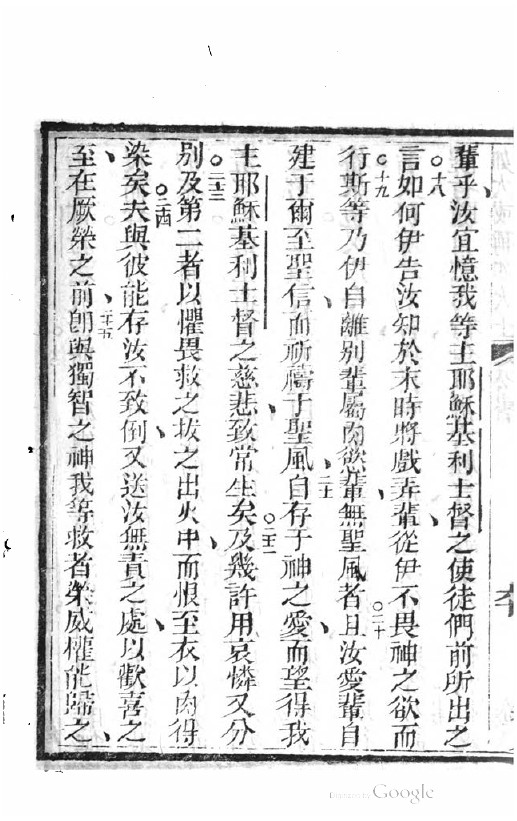 輩乎汝宜憶我等主耶穌基利士督之使徒們前所出之
○十八言如何伊告汝知於末時將戲弄輩從伊不畏神之欲而
○十九行斯等乃伊自離別輩屬肉慾輩無聖風者○二十且汝愛輩自
建于爾至聖信而祈禱于聖風○二十一自存于神之愛而望得我
主耶穌基利士督之慈悲致常生矣○二十二及幾許用哀憐又分
○二十三別及第二者以懼畏救之拔之出火中而恨至衣以肉得
染矣○二十四夫與彼能存汝不致倒又送汝無責之處以歡喜之
至在厥榮之前○二十五卽與獨智之神我等救者榮威權能歸之
Digitized by Google